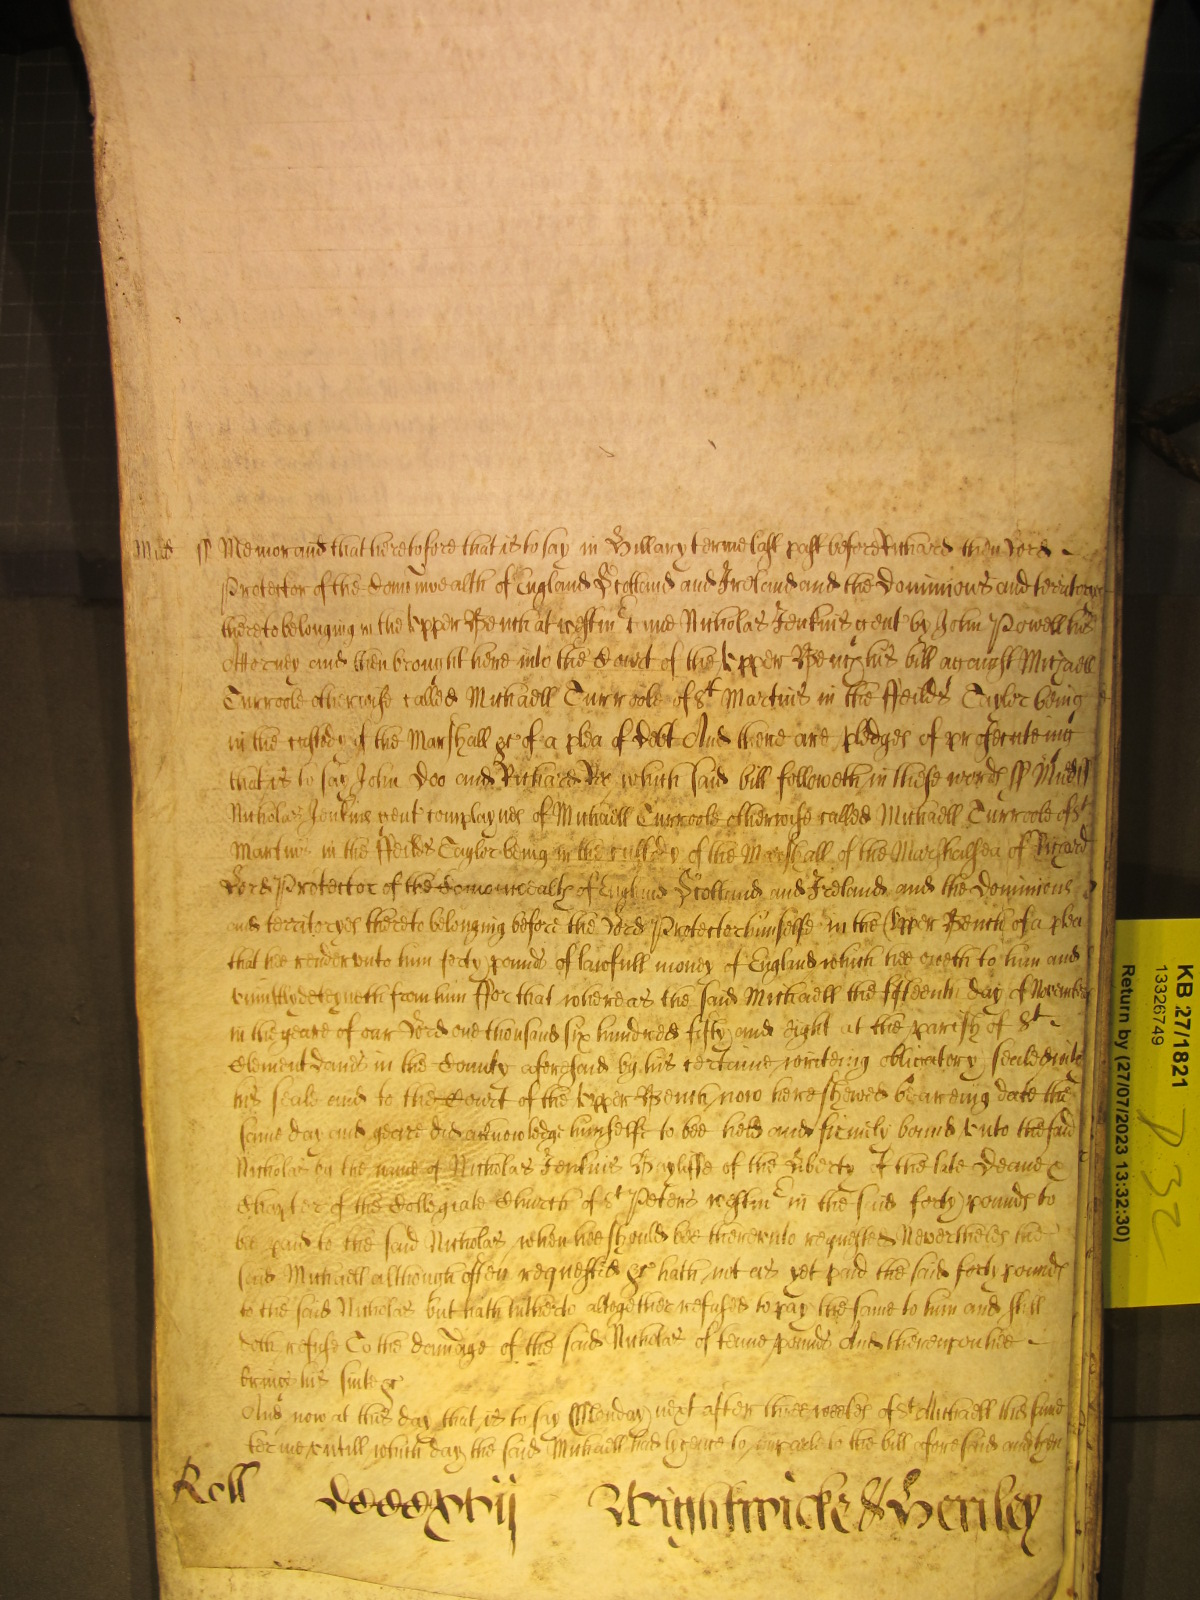 Midd ss Memorand that heretofore that is to say in Hillary terme last past before Richard then Lord
Protector of the Comonwealth of England Scotland and Ireland and the Dominions and territoryes
thereto belonging in the Upper Bench at Westmr came Nicholas Jenkins gent by John Powell his
Attorney and then brought here into the Court of the Upper Bench his bill against Michaell
Curroole otherwise called Michaell Curroole of St Martins in the ffeilds Taylor being
in the custody of the Marshall &c of a plea of debt And there are pledges of prosecuteing
that is to say John Doo and Richard Roe which said bill followeth in these words ss Midd ss
Nicholas Jenkins gent complaynes of Michaell Curroole otherwise called Michaell Curroole of St
Martins in the ffeilds Taylor being in the custody of the Marshall of the Marshalsea of Richard
Lord Protector of the Comonwealth of England Scotland and Ireland and the Dominions
and territoryes thereto belonging before the Lord Protector himselfe in the Upper Bench of a plea
that hee render unto him forty pounds of lawfull money of England which hee oweth to him and
uniustly deteyneth from him ffor that whereas the said Michaell the fifteenth day of November
in the yeare of our Lord one thousand six hundred fifty and eight at the parish of St
Clement Danes in the County aforesaid by his certaine writeing obligatory sealed with
his seale and to the Court of the Upper Bench now here shewed beareing date the
same day and yeare did acknowledge himselfe to bee held and firmly bound unto the said
Nicholas by the name of Nicholas Jenkins Bayliffe of the Liberty of the late Deane &
Chapter of the Collegiate Church of St Peters Westmr in the said forty pounds to
be paid to the said Nicholas when hee should bee thereunto requested Nevertheles the
said Michaell although often requested &c hath not as yet paid the said forty pounds
to the said Nicholas but hath hitherto altogether refused to pay the same to him and still
doth refuse To the damage of the said Nicholas of tenne pounds And thereupon hee
brings his suite &c
And now at this day that is to say Monday next after three weekes of St Michaell this same
terme untill which day the said Michaell had lycence to imparle to the bill aforesaid and then
Roll Wightwicke & Henley
KB 27/1821
13326749
Return by (27/07/2023 13:32:30)
P 32